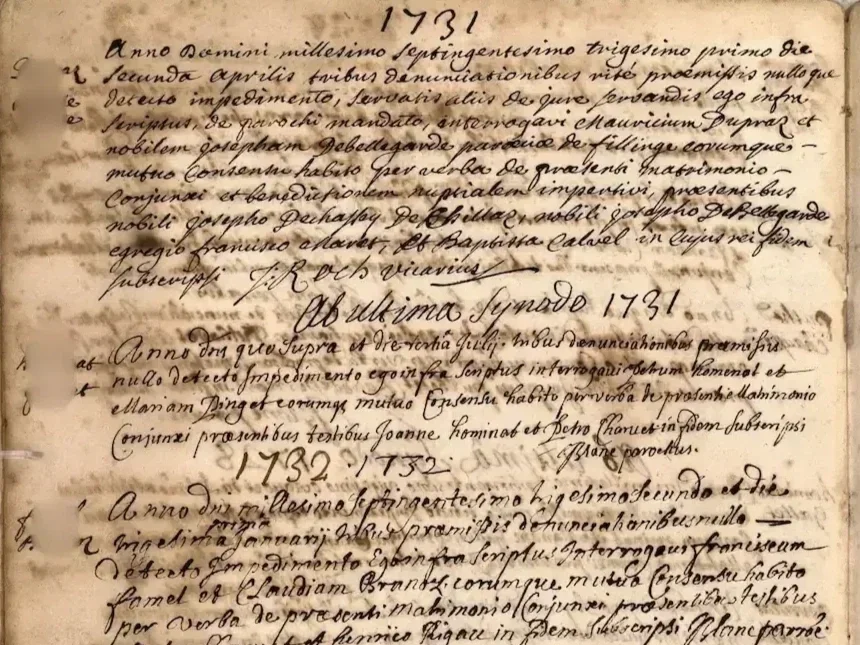 1731
Anno Domini millesimo septingentesimo trigesimo primo die
secunda aprilis tribus denunciationibus rité præmissis nulloque
detecto impedimento, servatis aliis de jure servandis ego infra
scriptus, de parochi mandato, interrogavi Mauricium Dupraz et
nobilem josepham Debellegarde parœciæ de fillinge eorumque –
mutuo consensu habito per verba de præsenti matrimonio –
Conjunxi et benedictionem nuptialem impertivi, præsentibus
nobili josepho Dechassey De Chillaz, nobili josepho DeBellegarde
egregio francisco Maret, Et Baptista Calvel in cujus rei fidem
subscripsi J: Roch vicarius
Ab ultima synodo 1731
Anno dni quo supra et die tertia Julij tribus denunciationibus præmissis
nullo detecto Impedimento ego infra scriptus interrogavi petrum homenat et
Mariam Pinget eorumq mutuo Consensu habito per verba de præsenti Matrimonio
Conjunxi præsentibus testibus Joanne hominat et Petro Charvet in fidem subscripsi
Blanc parochus.
1732 · 1732
Anno dni millesimo septingentesimo trigesimo secundo et die
trigesima prima Januarij tribus præmissis denunciationibus nullo —
detecto Impedimento Ego infra scriptus Interrogavi franciscum
famel et Claudiam Branaz. eorumque mutuo Consensu habito
per verba de præsenti matrimonio Conjunxi præsentibus testibus
et henrico Rigau in fidem subscripsi Blanc